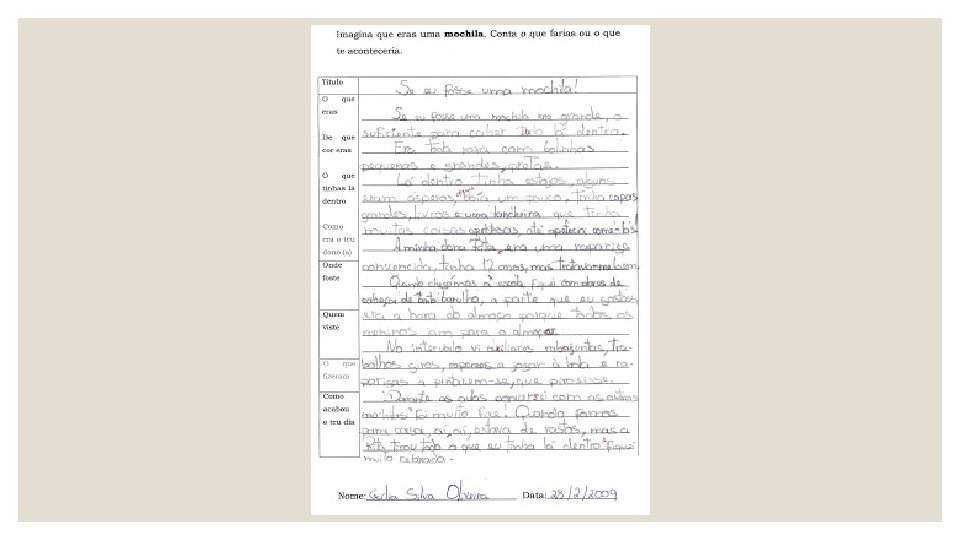 Imagina que eras uma mochila. Conta o que farias ou o que
te aconteceria.
Título
Se eu fosse uma mochila!
O que
eras
Se eu fosse uma mochila era grande, o
suficiente para caber tudo lá dentro.
De que
cor eras
Era toda rosa com bolinhas
pequenas e grandes, pretas.
O que
tinhas lá
dentro
Lá dentro tinha estojos, alguns
eram ásperos, um pouco, tinha capas
grandes, livros e uma lancheira que tinha
muitas coisas apetitosas, até apetecia comê-las!
Como
era o teu
dono (a)
A minha dona Rita, era uma rapariga
convencida, tinha 12 anos, mas tratava-me bem.
Onde
foste
Quando chegámos à escola fiquei com dores de
cabeça de tanto barulho, a parte que eu gostava
era a hora do almoço porque todos os
meninos iam para o almoçar.
Quem
viste
No intervalo vi auxiliares rabugentas, tra-
balhos giros, rapazes a jogar à bola e ra-
parigas a pintarem-se, que pirosisse.
O que
fizeram
Como
acabou
o teu dia
Durante as aulas conversei com as outras
mochilas foi muito fixe! Quando fomos
para casa, aí, aí, estava de rastos, mas a
Rita tirou tudo o que eu tinha lá dentro fiquei
muito
Nome: Carla Silva Oliveira Data: 23/2/2009